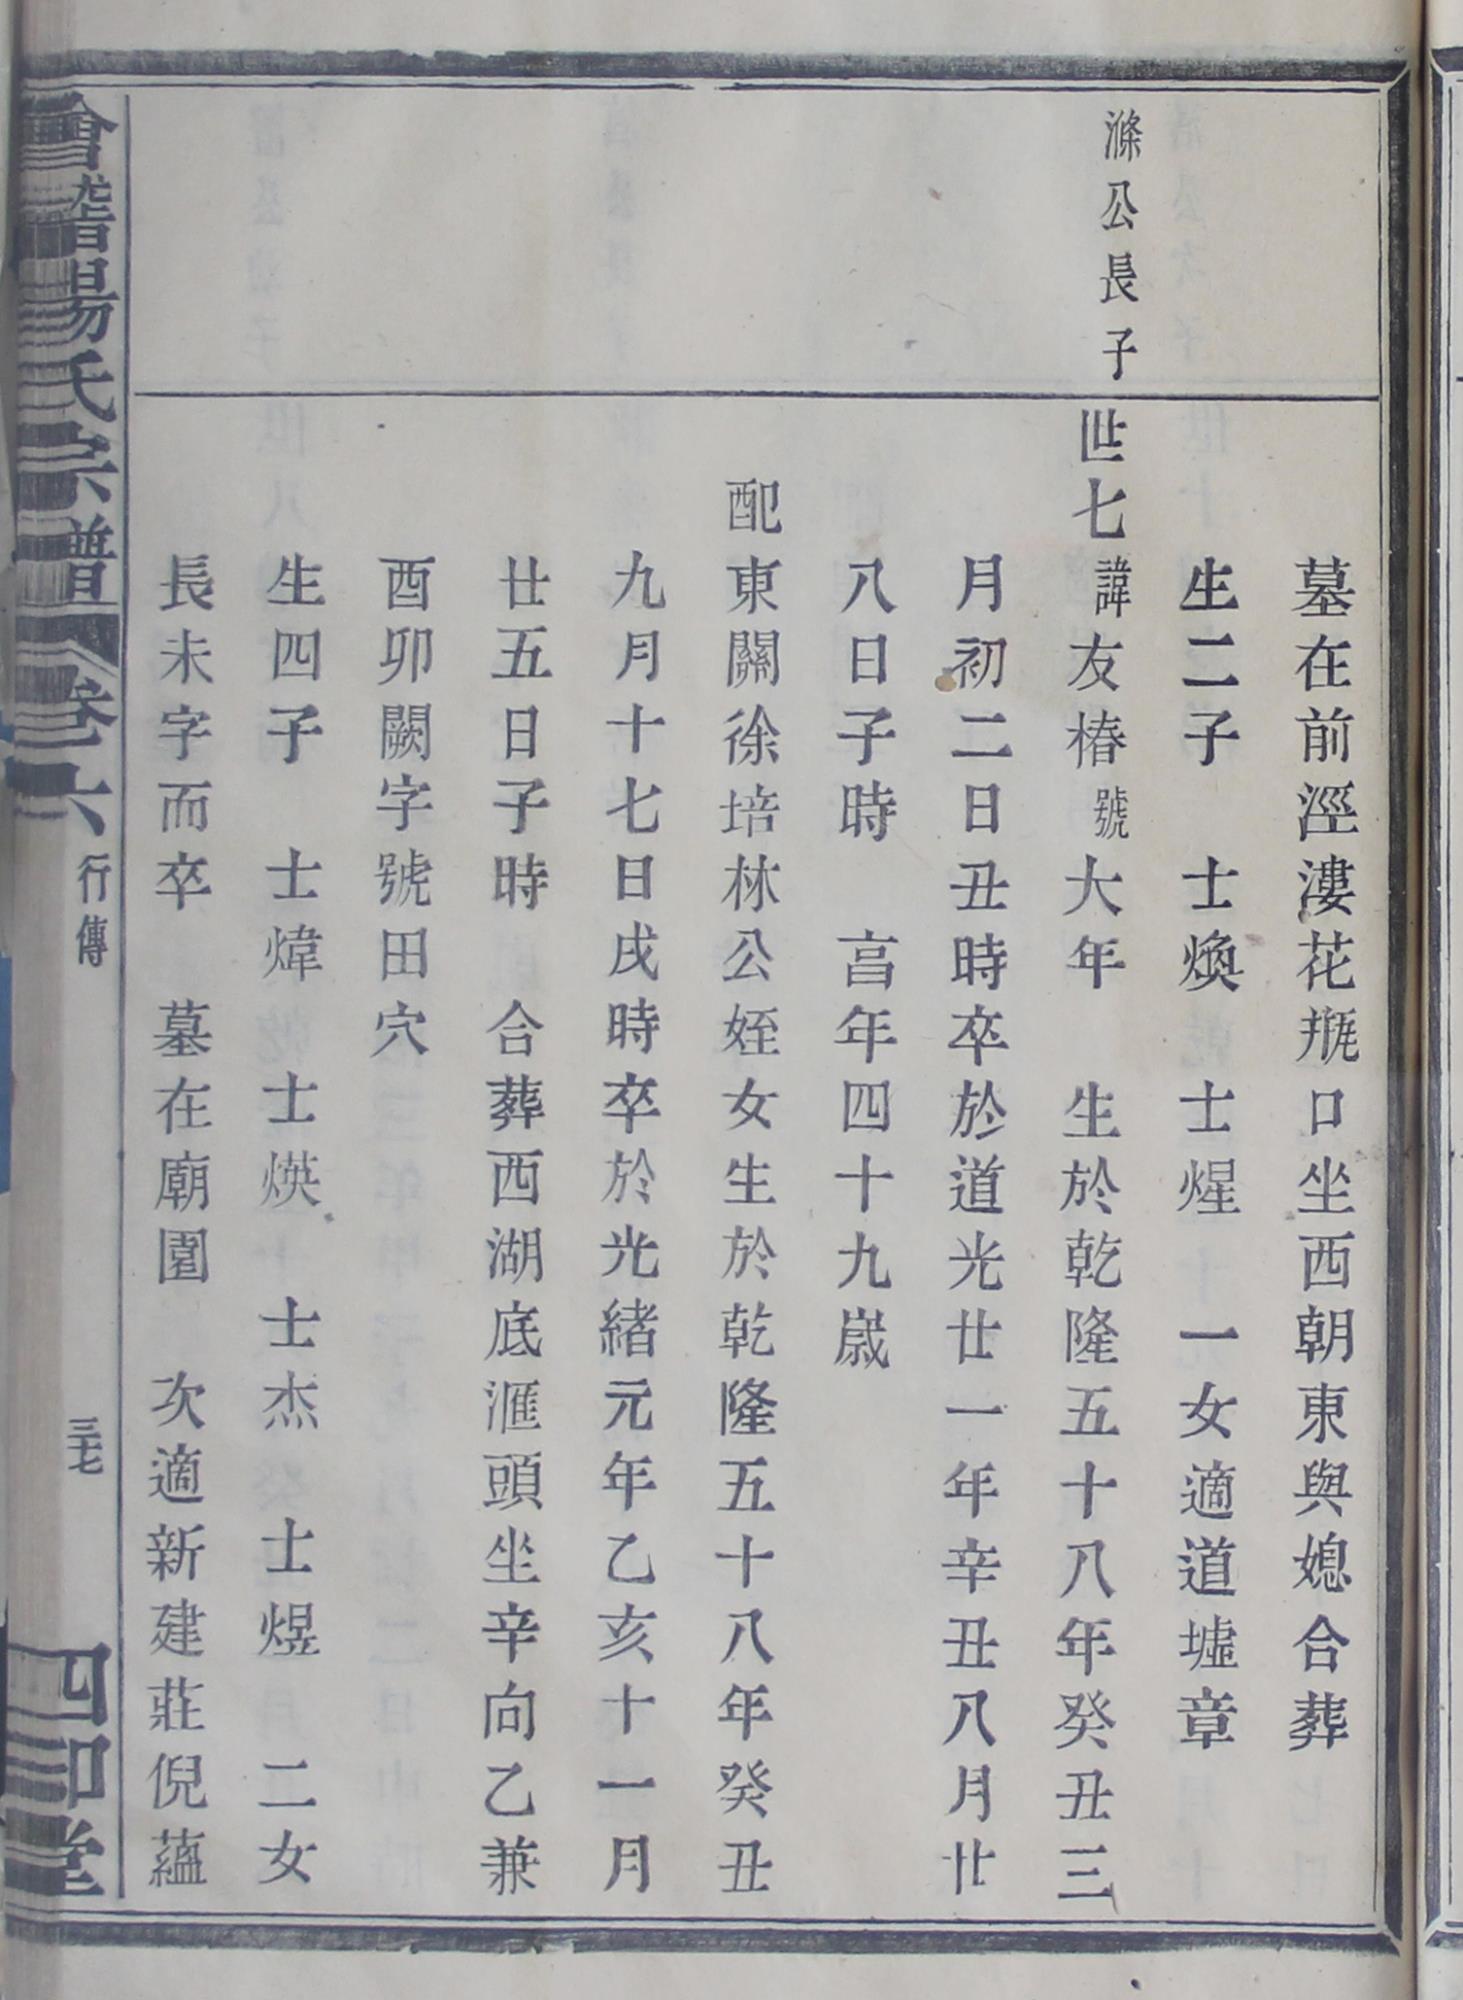 墓在前溼漊花瓶口坐西朝東與媳合葬
生二子 士煥 士煋 一女適道墟章
滌公長子
世七 諱友椿號大年 生於乾隆五十八年癸丑三
月初二日丑時卒於道光廿一年辛丑八月廿
八日子時 亯年四十九歲
配東關徐培林公姪女生於乾隆五十八年癸丑
九月十七日戌時卒於光緒元年乙亥十一月
廿五日子時 合葬西湖底滙頭坐辛向乙兼
酉卯闕字號田穴
生四子 士煒 士煐 士杰 士煜 二女
長未字而卒 墓在廟園 次適新建莊倪蘊
會稽楊氏宗譜 卷六 行傳 三七 四知堂